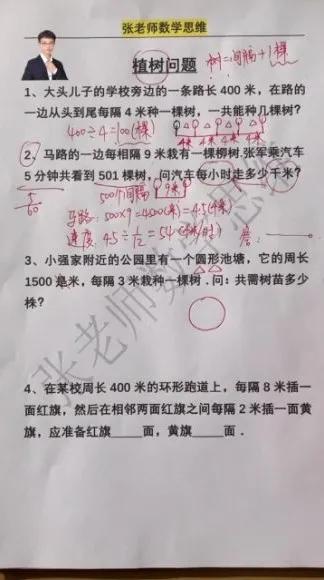 张老师数学思维
植树问题
树=间隔+1棵
1、大头儿子的学校旁边的一条路长 400 米，在路的
一边从头到尾每隔 4 米种一棵树，一共能种几棵树？
400÷4=100(棵)
4米 4米 4米 4米
2、马路的一边每相隔 9 米栽有一棵柳树.张军乘汽车
5 分钟共看到 501 棵树，问汽车每小时走多少千米？
5/60
500个间隔 9米
马路：500×9=4500(米)=4.5(千米)
速度：4.5÷1/12=54(千米/时)
答：
3、小强家附近的公园里有一个圆形池塘，它的周长
1500 米，每隔 3 米栽种一棵树．问：共需树苗多少
株？
4、在某校周长 400 米的环形跑道上，每隔 8 米插一
面红旗，然后在相邻两面红旗之间每隔 2 米插一面黄
旗，应准备红旗_____面，黄旗____面．
张老师数学思维